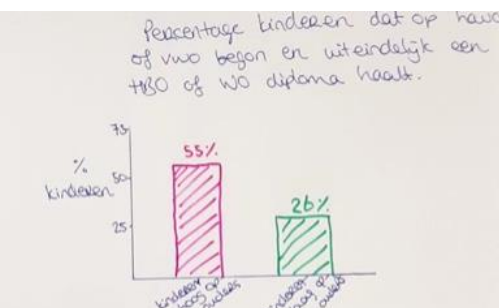 Percentage kinderen dat op havo
of vwo begon en uiteindelijk een
HBO of WO diploma haalt.
75
55%
%
kinderen
50
26%
25
kinderen kinderen
op
ouders ouders